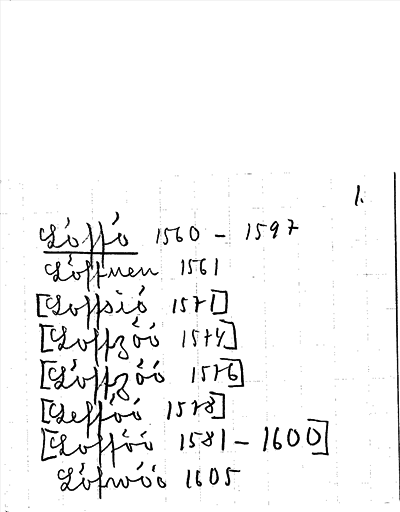 1.
Lóffó 1560 - 1597
Lóffnen 1561
[Loffsió 1571]
[Loffzóó 1574]
[Lóffzóó 1576]
[Leffóó 1578]
[Loffóó 1581 - 1600]
Lófwóó 1605